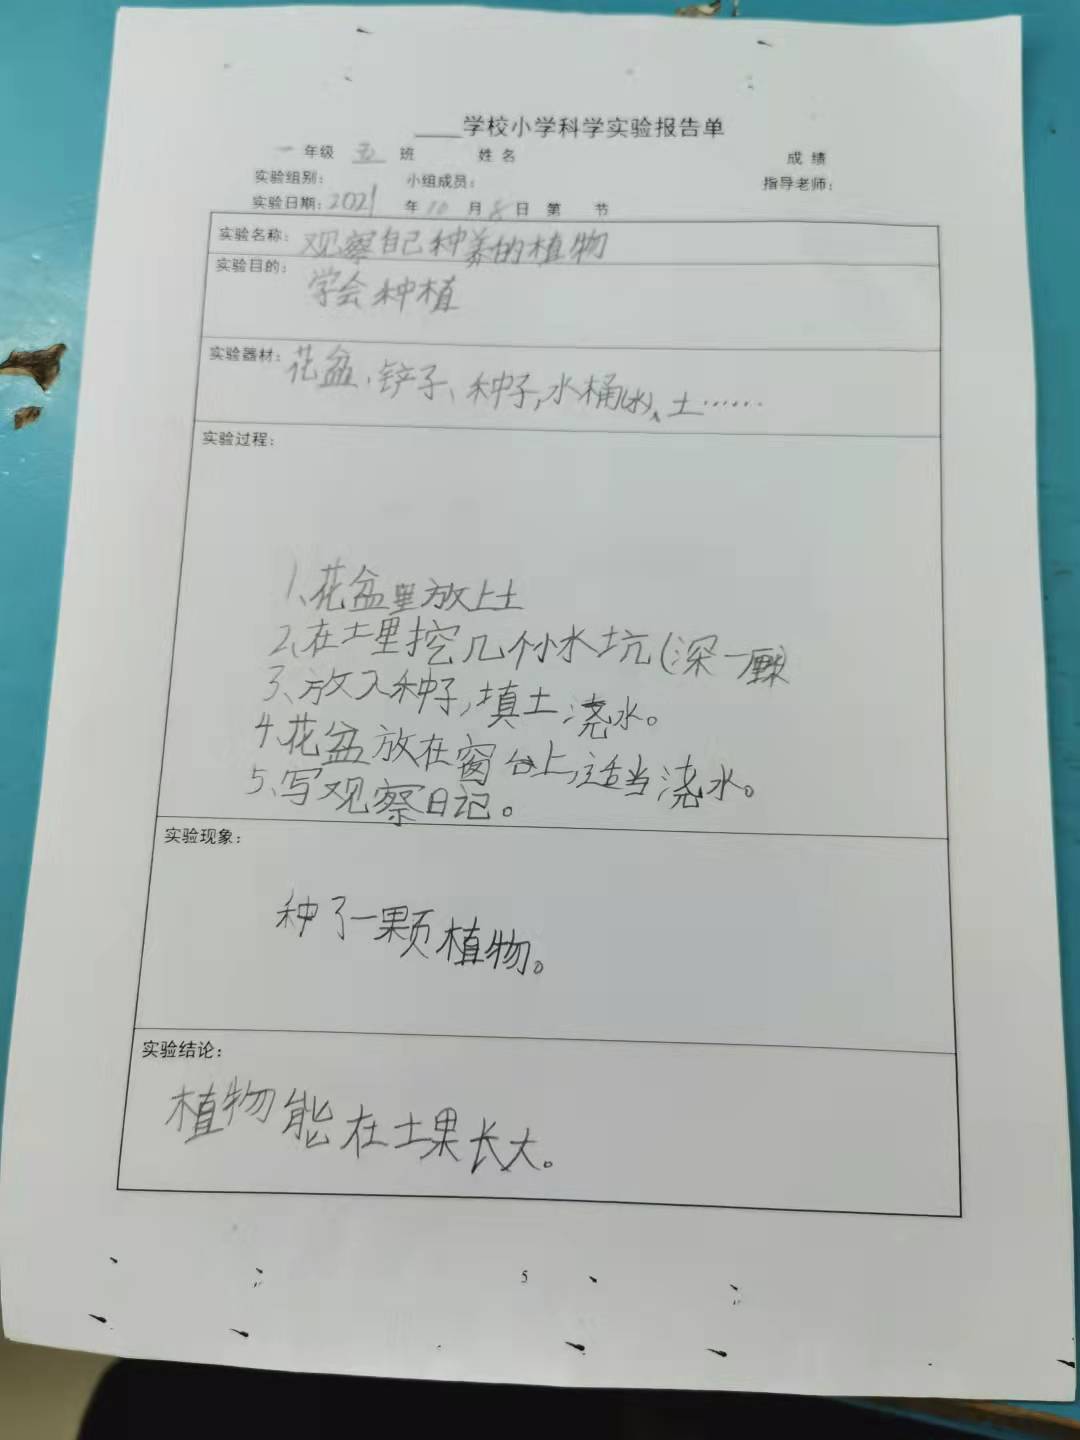 ____学校小学科学实验报告单
一 年级 五 班 姓名 成绩
实验组别： 小组成员： 指导老师：
实验日期：2021 年 10 月 8 日 第 节
实验名称：观察自己种养的植物
实验目的：学会种植
实验器材：花盆、铲子、种子,水桶(水)、土……
实验过程：
1、花盆里放上土
2、在土里挖几个小水坑(深一
3、放入种子,填土浇水。
4、花盆放在窗台上,适当浇水。
5、写观察日记。
实验现象：
种了一颗植物。
实验结论：
植物能在土果长大。
5